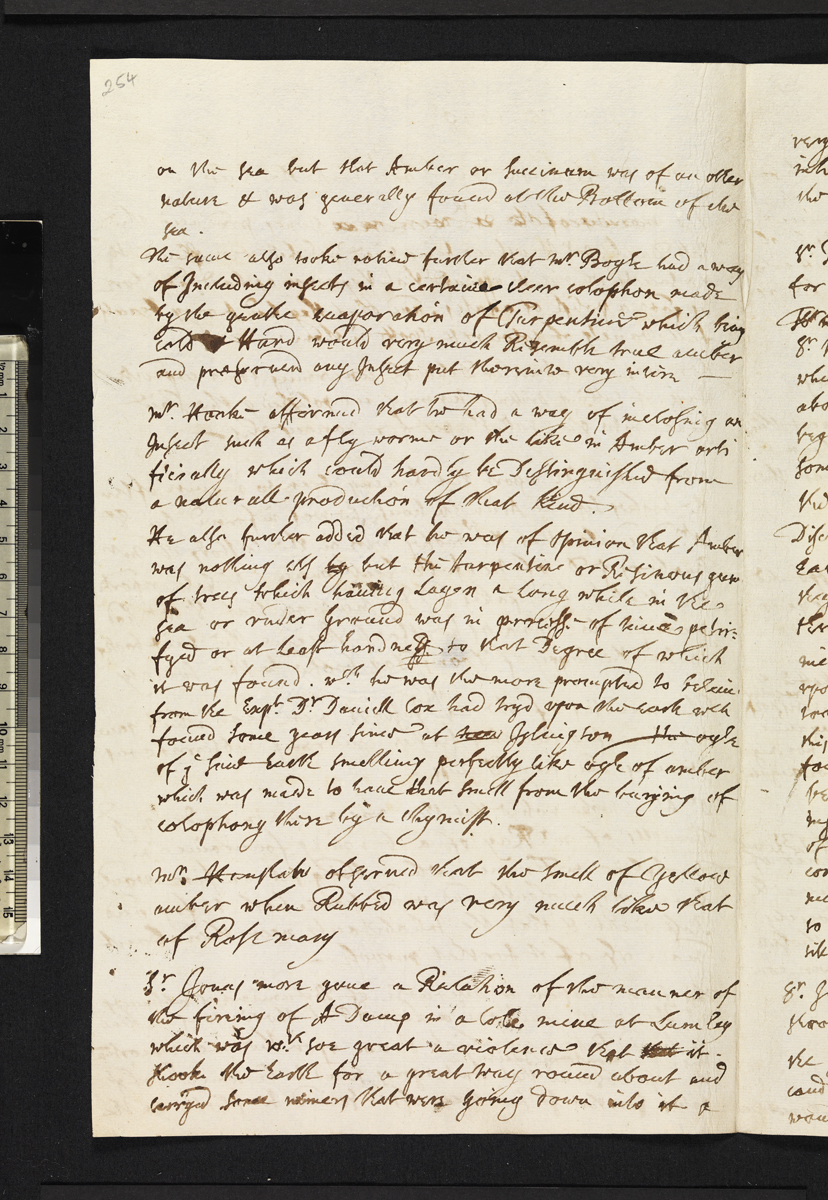 254
on the sea but that Amber or Succinum was of an other
nature & was generally found at the Bottom of the
sea.
The same also tooke notice further that mr. Boyle had a way
of Including insects in a certaine clear colophon made
by the quake evaporation of Turpentine which being
cold Hard would very much Resemble true amber
and preserued any Insect put therinto very intire —
mr. Hooke affirmed that he had a way of inclosing an
Insect such as a fly worme or the like in Amber arti
ficially which could hardly be Distinguished from
a naturall production of that kind.
He also further added that he was of opinion that Amber
was nothing els but the turpentine or Resinous gum
of trees which having Layen a long while in the
sea or under Ground was in processe of time petri-
fyed or at Least hardned to that Degree of which
it was found. wch. he was the more prompted to beleiue
from the Expt. Dr Daniell Cox had tryd vpon the earth wch
found some years since at Islington the oyle
of ye said Earth smelling perfectly like oyle of amber
which was made to haue that smell from the burying of
colophony there by a chymist.
mr. Henshaw obserued that the smell of yellow
amber when Rubbed was very much like that
of Rosemary
Sr. Jonas more gaue a Relation of the manner of
the fireing of A Damp in a Cole mine at Lumley
which was wth. soe great a violence that it
shook the Earth for a great way round about and
carryed some miners that were going down into it a